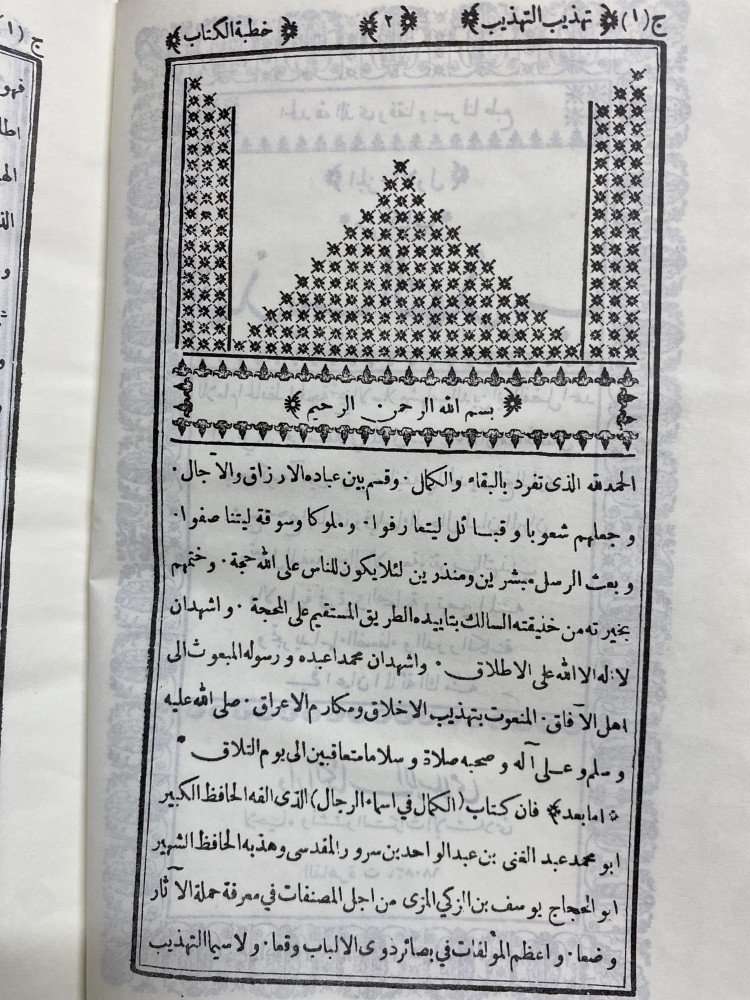 ج (١) ﴿ تهذيب التهذيب ﴾ ﴿ ٢ ﴾ ﴿ خطبة الكتاب ﴾
﴿ بسم الله الرحمن الرحيم ﴾
الحمدلله الذى تفرد بالبقاء والكمال ٠ وقسم بين عباده الارزاق والآجال ٠
وجعلهم شعوبا وقبائل ليتعارفوا ٠ وملوكا وسوقة ليتناصفوا ٠
وبعث الرسل مبشرين ومنذرين لئلا يكون للناس على الله حجة ٠ وختمهم
بخيرته من خليقته السالك بتاييده الطريق المستقيم على المحجة ٠ واشهد ان
لا اله الا الله على الاطلاق ٠ واشهد ان محمدا عبده ورسوله المبعوث الى
اهل الآفاق ٠ المنعوت بتهذيب الاخلاق ومكارم الاعراق ٠ صلى الله عليه
وسلم وعلى آله وصحبه صلاة وسلاما متعاقبين الى يوم التلاق ٠
﴿ اما بعد ﴾ فان كتاب (الكمال في اسماء الرجال) الذى الفه الحافظ الكبير
ابو محمد عبد الغنى بن عبد الواحد بن سرور المقدسى وهذبه الحافظ الشهير
ابو الحجاج يوسف بن الزكي المزى من اجل المصنفات في معرفة حملة الآثار
وضعا ٠ واعظم المؤلفات في بصائر ذوى الالباب وقعا ٠ ولا سيما التهذيب
ج (١
فهو
اطا
اله
الذ
و